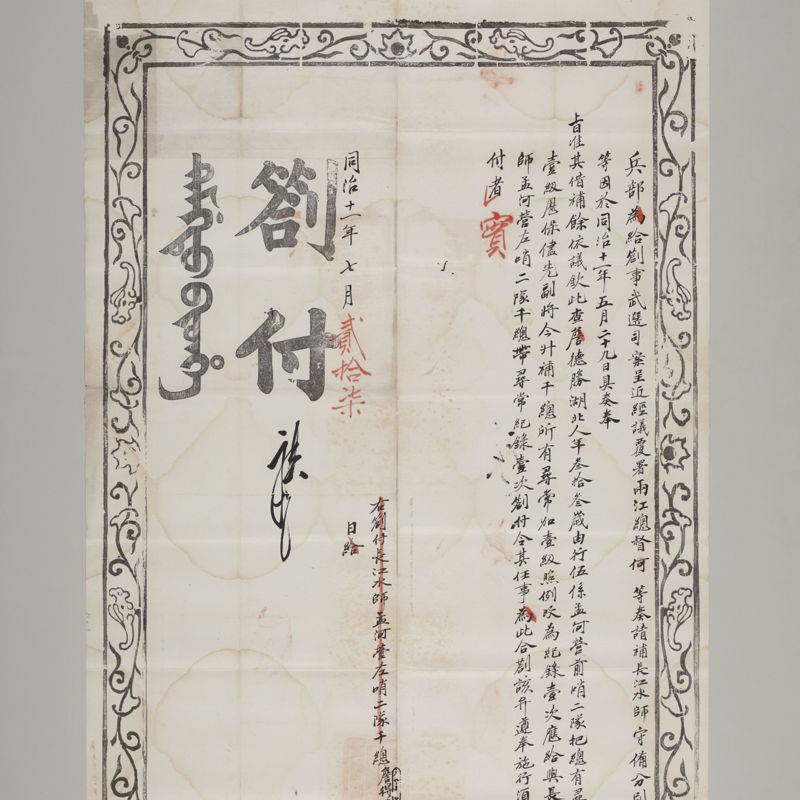 兵部為給劄事武選司案呈近經議覆署兩江總督何 等奏請補長江水師守備分別
等因於同治十一年五月二十九日具奏奉
旨准其借補餘依議欽此查詹德勝湖北人年叁拾叁歲由行伍係孟河營前哨二隊把總有尋
壹級歷保儘先副將今升補千總所有尋常加壹級照例改為紀錄壹次應給與長
師孟河營左哨二隊千總帶尋常紀錄壹次劄付令其任事為此合劄該弁遵奉施行須
付者
實
右劄付長江水師孟河營左哨二隊千總詹
同治十一年七月貳拾柒日給
劄付